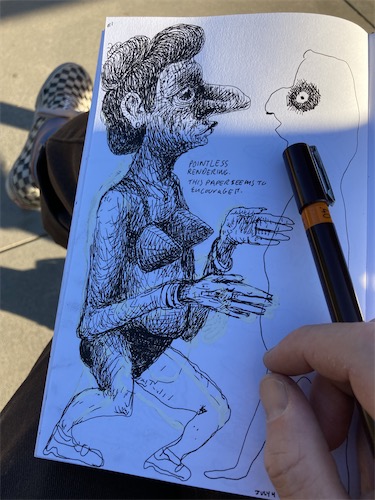 POINTLESS
RENDERING.
THIS PAPER SEEMS TO
ENCOURAGE IT.
JULY 4